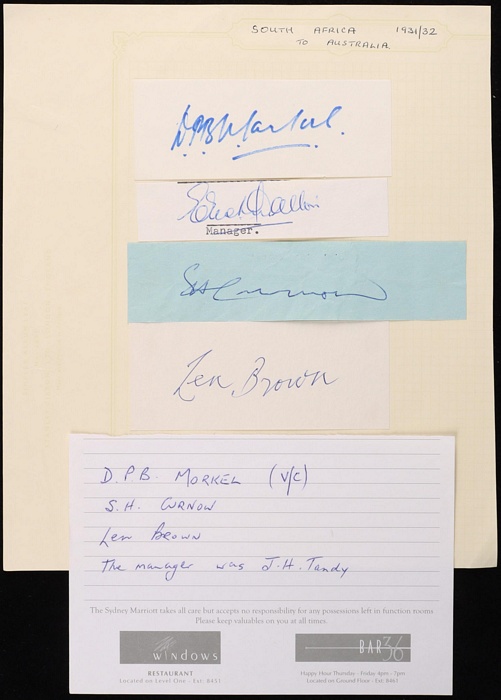 SOUTH AFRICA 1931/32
TO AUSTRALIA
DPB Morkel.
Manager.
SH Curnow
Len Brown
D.P.B. MORKEL (V/C)
S.H. CURNOW
Len BROWN
The manager was J.H. Tandy
The Sydney Marriott takes all care but accepts no responsibility for any possessions left in function rooms
Please keep valuables on you at all times.
WINDOWS
RESTAURANT
Located on Level One - Ext. 8451
BAR 36
Happy Hour Thursday - Friday 4pm - 7pm
Located on Ground Floor - Ext. 8461